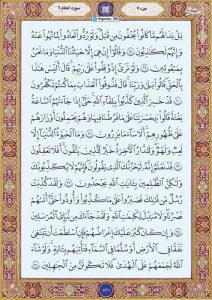 جزء ٧
سورة الانعام ٦
بَلْ بَدَا لَهُم مَّا كَانُوا۟ يُخْفُونَ مِن قَبْلُ وَلَوْ رُدُّوا۟ لَعَادُوا۟ لِمَا نُهُوا۟ عَنْهُ
وَإِنَّهُمْ لَكَٰذِبُونَ ٢٨ وَقَالُوٓا۟ إِنْ هِىَ إِلَّا حَيَاتُنَا ٱلدُّنْيَا وَمَا نَحْنُ
بِمَبْعُوثِينَ ٢٩ وَلَوْ تَرَىٰٓ إِذْ وُقِفُوا۟ عَلَىٰ رَبِّهِمْ قَالَ أَلَيْسَ هَٰذَا
بِٱلْحَقِّ قَالُوا۟ بَلَىٰ وَرَبِّنَا قَالَ فَذُوقُوا۟ ٱلْعَذَابَ بِمَا كُنتُمْ تَكْفُرُونَ
٣٠ قَدْ خَسِرَ ٱلَّذِينَ كَذَّبُوا۟ بِلِقَآءِ ٱللَّهِ حَتَّىٰٓ إِذَا جَآءَتْهُمُ ٱلسَّاعَةُ
بَغْتَةً قَالُوا۟ يَٰحَسْرَتَنَا عَلَىٰ مَا فَرَّطْنَا فِيهَا وَهُمْ يَحْمِلُونَ أَوْزَارَهُمْ
عَلَىٰ ظُهُورِهِمْ أَلَا سَآءَ مَا يَزِرُونَ ٣١ وَمَا ٱلْحَيَوٰةُ ٱلدُّنْيَآ إِلَّا
لَعِبٌ وَلَهْوٌ وَلَلدَّارُ ٱلْءَاخِرَةُ خَيْرٌ لِّلَّذِينَ يَتَّقُونَ أَفَلَا تَعْقِلُونَ
٣٢ قَدْ نَعْلَمُ إِنَّهُۥ لَيَحْزُنُكَ ٱلَّذِى يَقُولُونَ فَإِنَّهُمْ لَا يُكَذِّبُونَكَ
وَلَٰكِنَّ ٱلظَّٰلِمِينَ بِـَٔايَٰتِ ٱللَّهِ يَجْحَدُونَ ٣٣ وَلَقَدْ كُذِّبَتْ
رُسُلٌ مِّن قَبْلِكَ فَصَبَرُوا۟ عَلَىٰ مَا كُذِّبُوا۟ وَأُوذُوا۟ حَتَّىٰٓ أَتَىٰهُمْ
نَصْرُنَا وَلَا مُبَدِّلَ لِكَلِمَٰتِ ٱللَّهِ وَلَقَدْ جَآءَكَ مِن نَّبَإِى۟ ٱلْمُرْسَلِينَ
٣٤ وَإِن كَانَ كَبُرَ عَلَيْكَ إِعْرَاضُهُمْ فَإِنِ ٱسْتَطَعْتَ أَن تَبْتَغِىَ
نَفَقًا فِى ٱلْأَرْضِ أَوْ سُلَّمًا فِى ٱلسَّمَآءِ فَتَأْتِيَهُم بِـَٔايَةٍ وَلَوْ شَآءَ
ٱللَّهُ لَجَمَعَهُمْ عَلَى ٱلْهُدَىٰ فَلَا تَكُونَنَّ مِنَ ٱلْجَٰهِلِينَ ٣٥
١٣١